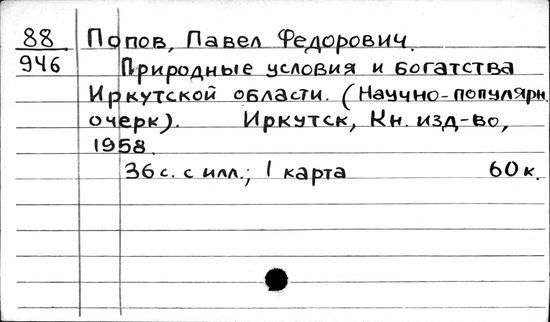 88 Попов, Павел Федорович.
946 Природные условия и богатства
Иркутской области. (Научно-популярн.
очерк). Иркутск, Кн. изд-во,
1958.
36 с. с илл.; 1 карта 60 к.